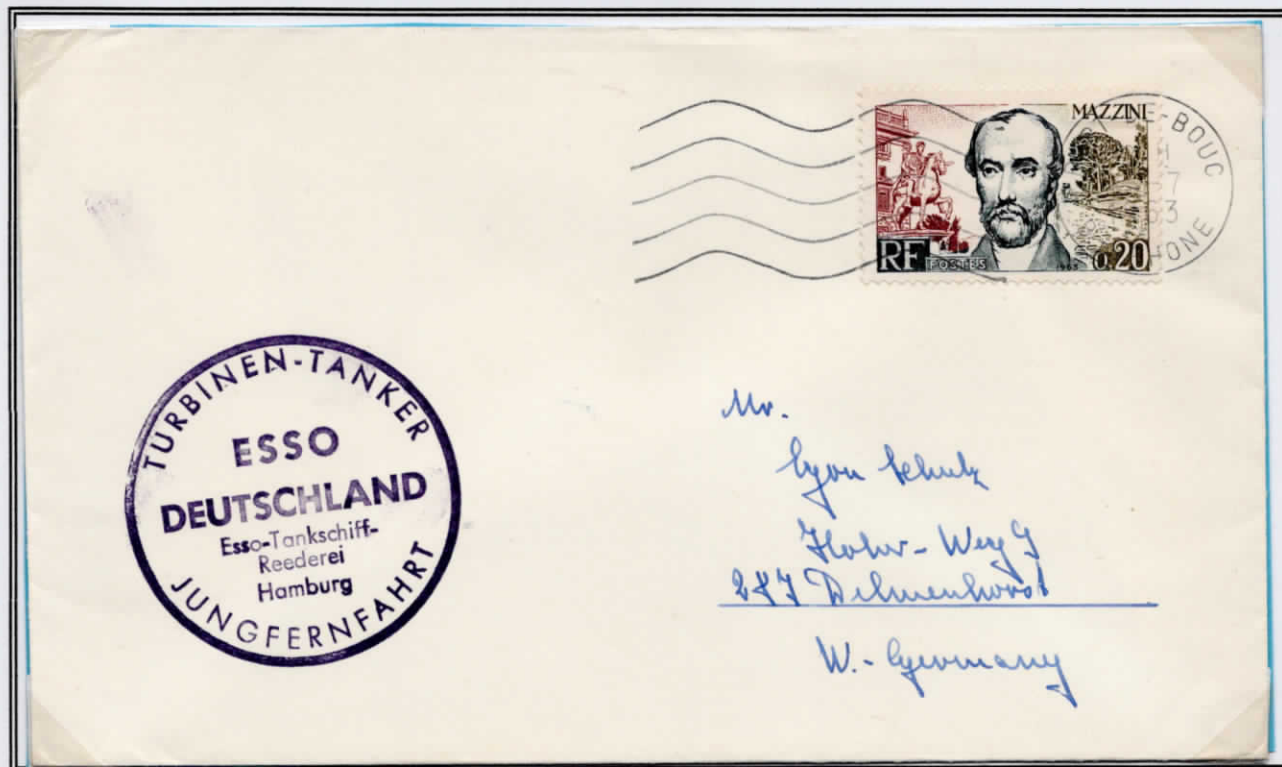 MAZZINI
RF POSTES 0,20
DE-BOUC
TURBINEN-TANKER
ESSO
DEUTSCHLAND
Esso-Tankschiff-
Reederei
Hamburg
JUNGFERNFAHRT
Mr.
Schulz
287 Delmenhorst
W.-Germany